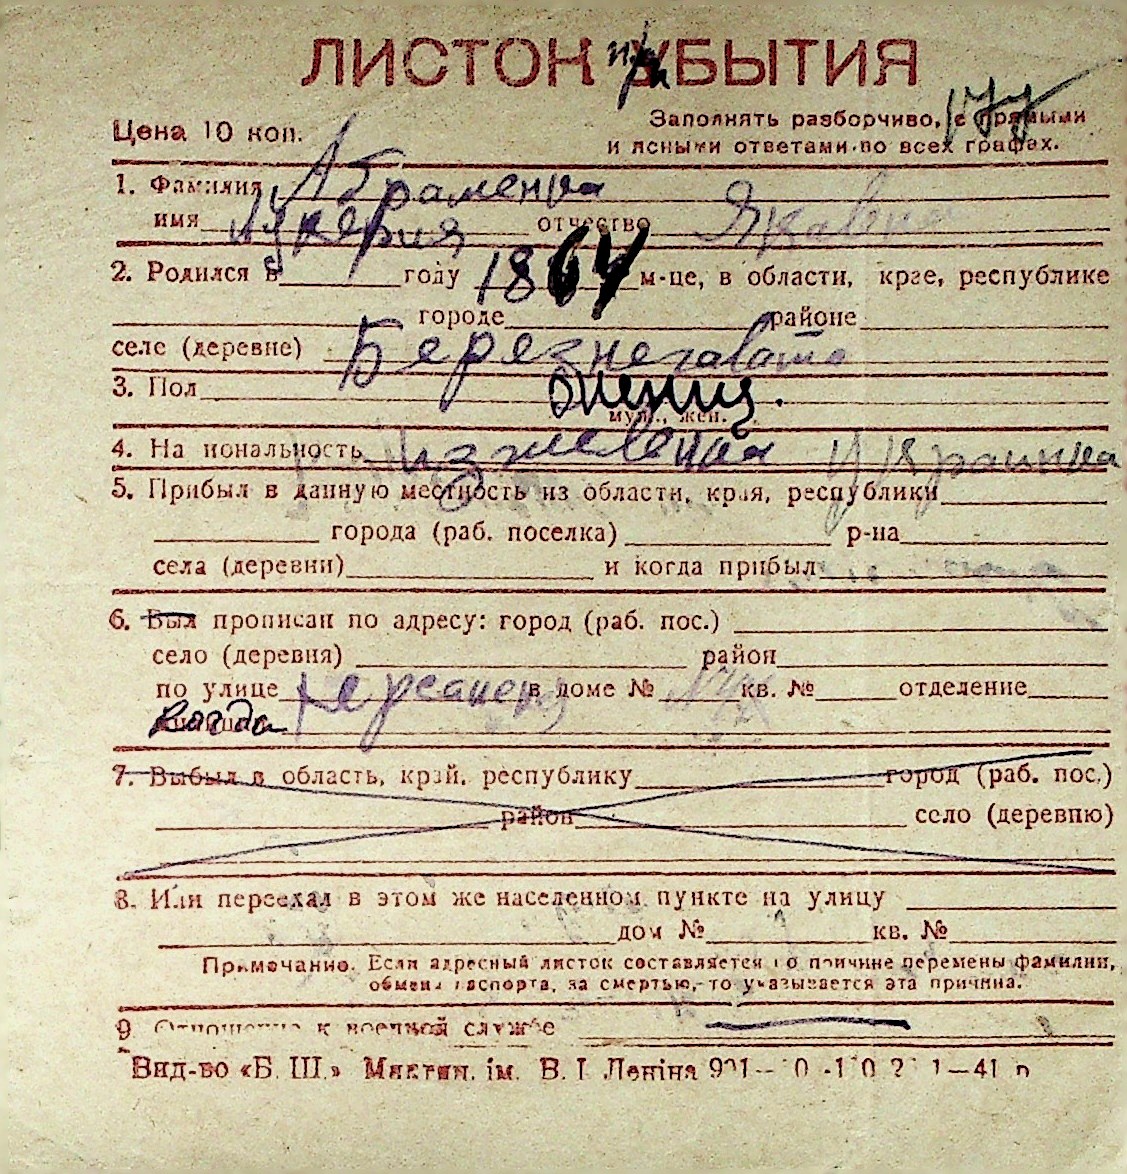 ЛИСТОК при УБЫТИЯ
Цена 10 коп.
Заполнять разборчиво, с прямыми
и ясными ответами по всех графах.
1. Фамилия Абраменка
имя Лукерия отчество Якавна
2. Родился в году 1864 м-це, в области, крае, республике
городе районе
селе (деревне) Березнеговато
3. Пол женщ.
муж., жен.
4. Национальность украинка
5. Прибыл в данную местность из области, края, республики
города (раб. поселка) р-на
села (деревни) и когда прибыл
6. Был прописан по адресу: город (раб. пос.)
село (деревня) район
по улице в доме № кв. № отделение
когда
7. Выбыл в область, край, республику город (раб. пос.)
район село (деревню)
8. Или переехал в этом же населенном пункте на улицу
дом № кв. №
Примечание. Если адресный листок составляется по причине перемены фамилии,
обмена паспорта, за смертью,-то указывается эта причина.
9 Отношение к военной службе
Вид-во «Б. Ш.» Микти. ім. В. І Леніна